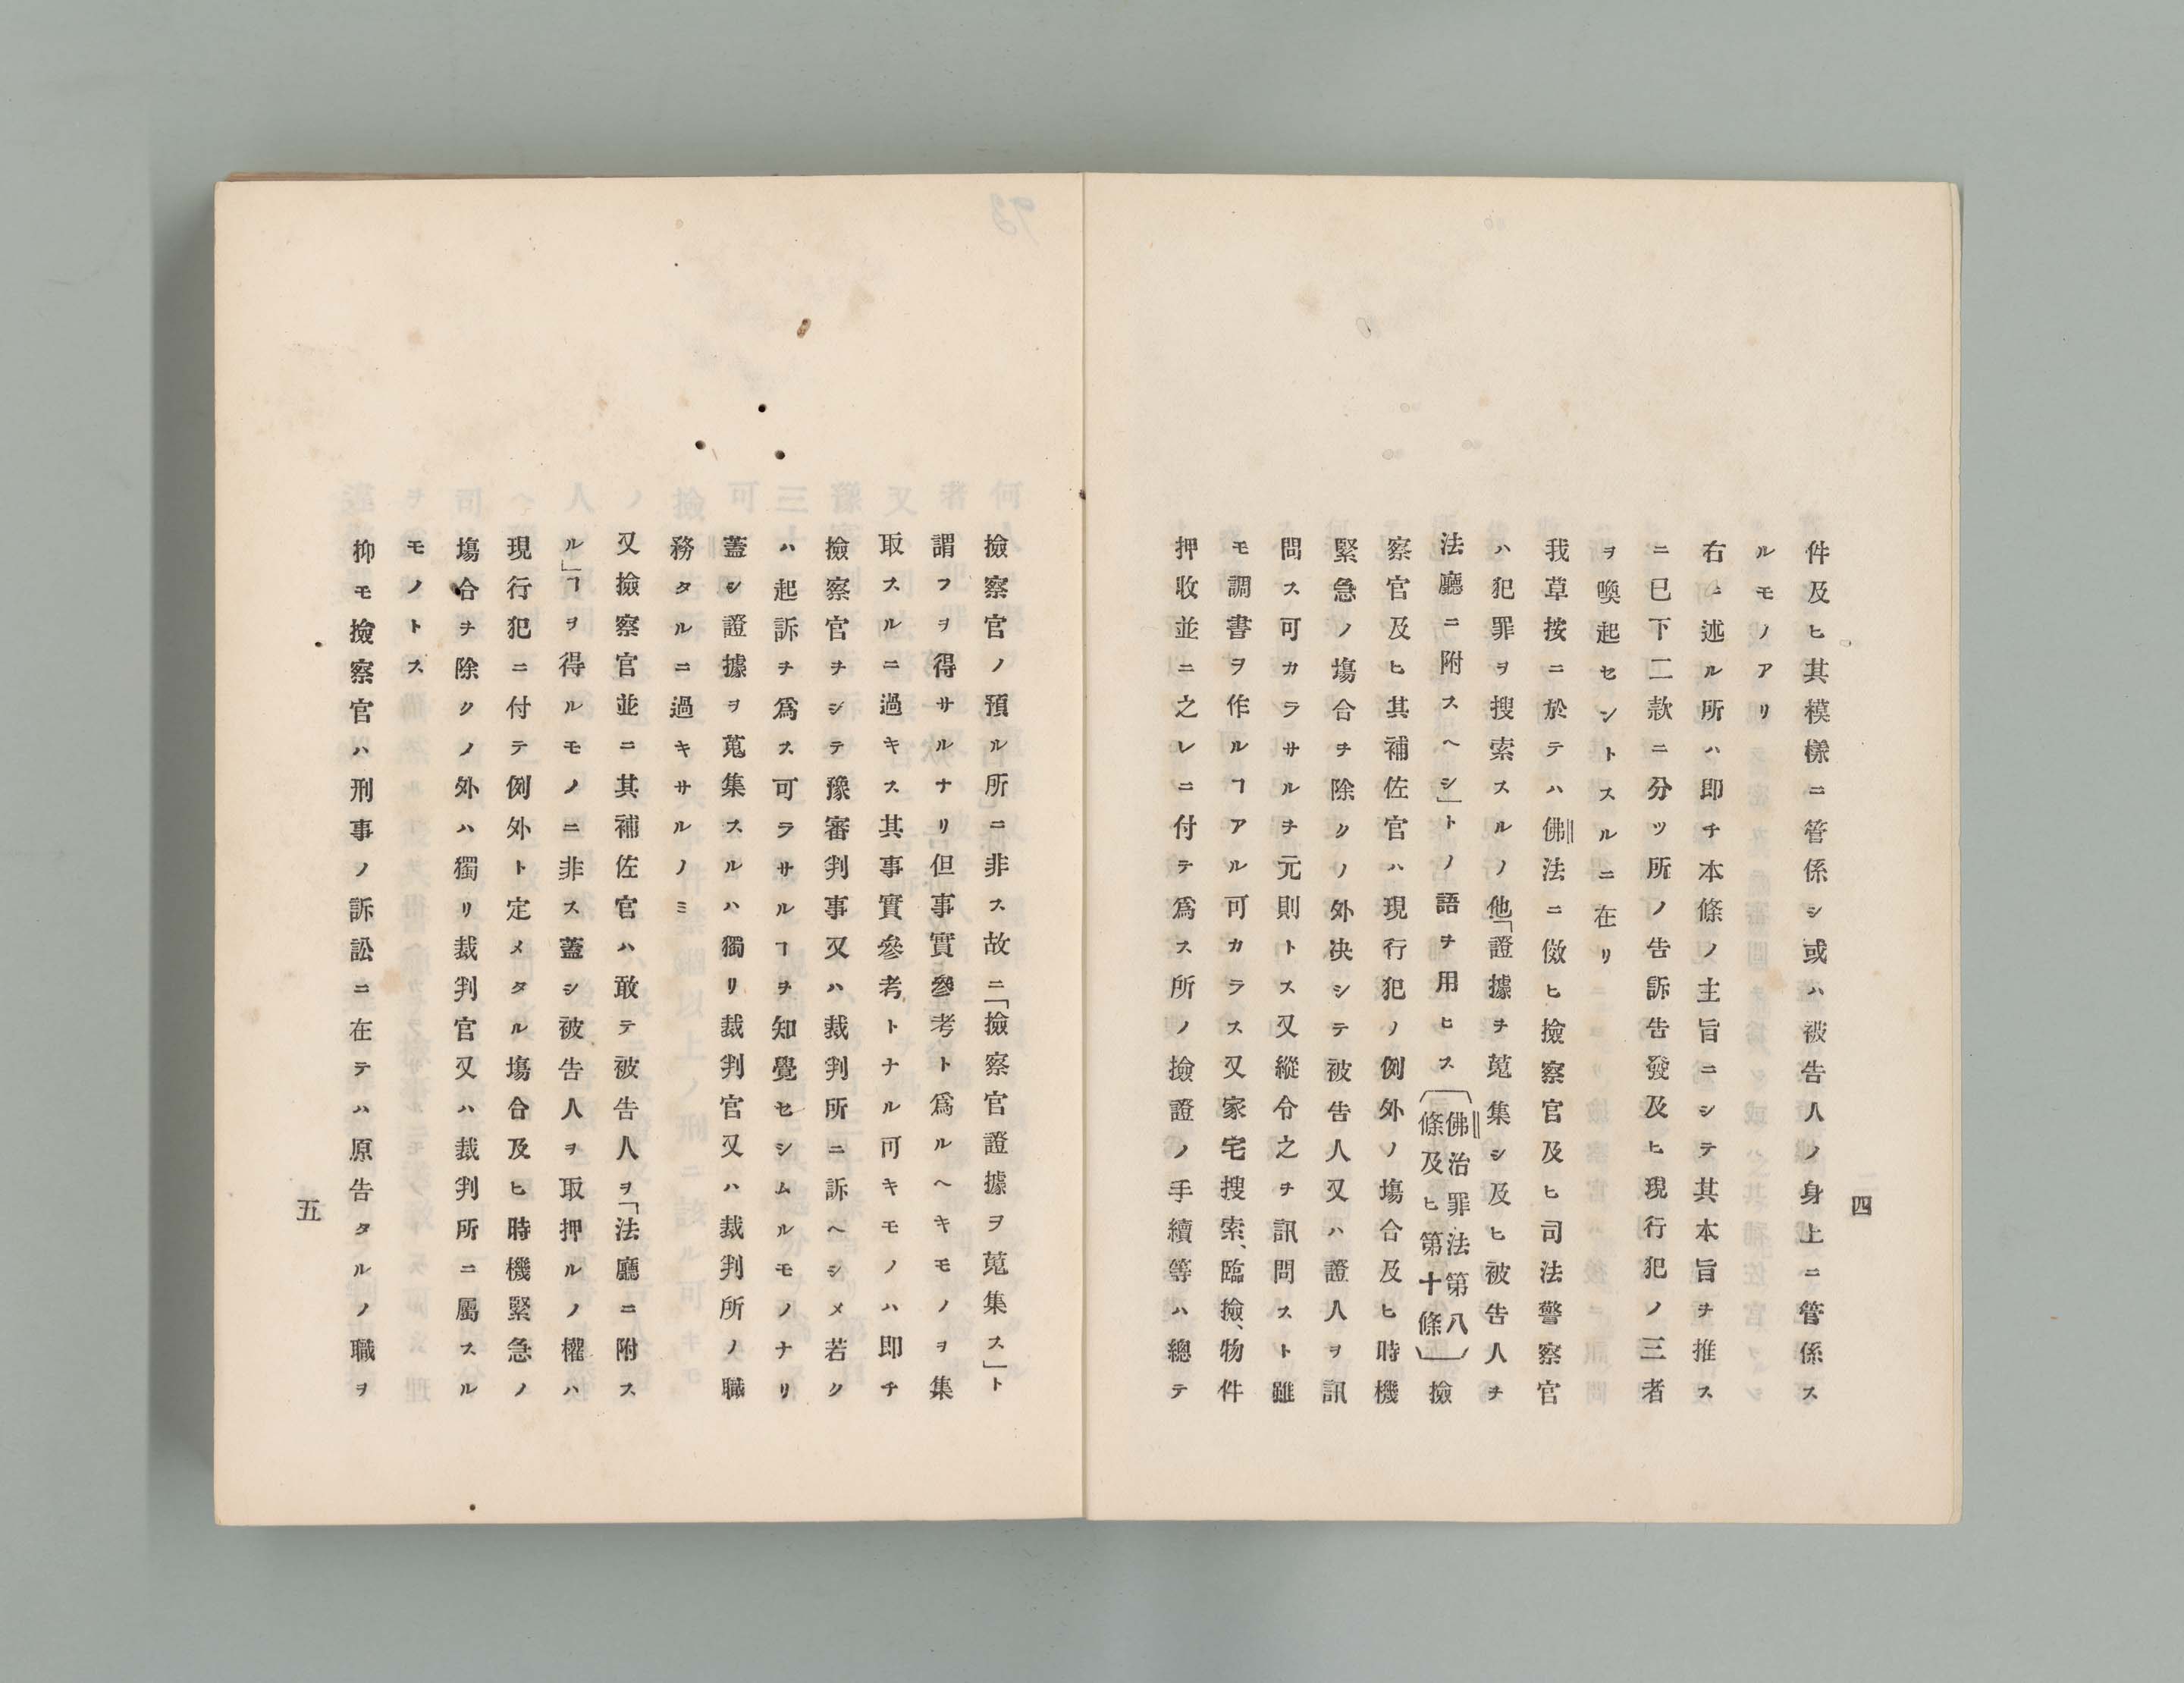 四
件及ヒ其模樣ニ管係シ或ハ被告人ノ身上ニ管係ス
ルモノアリ
右ニ述ル所ハ即チ本條ノ主旨ニシテ其本旨ヲ推ス
ニ已下二款ニ分ツ所ノ告訴告發及ヒ現行犯ノ三者
ヲ喚起セントスルニ在リ
我草按ニ於テハ佛法ニ倣ヒ撿察官及ヒ司法警察官
ハ犯罪ヲ搜索スルノ他「證據ヲ蒐集シ及ヒ被告人ヲ
法廳ニ附スヘシ」トノ語ヲ用ヒス〔佛治罪法第八條及ヒ第十條〕撿
察官及ヒ其補佐官ハ現行犯ノ例外ノ塲合及ヒ時機
緊急ノ塲合ヲ除クノ外决シテ被告人又ハ證人ヲ訊
問ス可カラサルヲ元則トス又縱令之ヲ訊問スト雖
モ調書ヲ作ルヿアル可カラス又家宅搜索、臨撿、物件
押收並ニ之レニ付テ爲ス所ノ撿證ノ手續等ハ總テ
撿察官ノ預ル所ニ非ス故ニ「撿察官證據ヲ蒐集ス」ト
謂フヲ得サルナリ但事實參考ト爲ルヘキモノヲ集
取スルニ過キス其事實參考トナル可キモノハ即チ
撿察官ヲシテ豫審判事又ハ裁判所ニ訴ヘシメ若ク
ハ起訴ヲ爲ス可ラサルヿヲ知覺セシムルモノナリ
蓋シ證據ヲ蒐集スルハ獨リ裁判官又ハ裁判所ノ職
務タルニ過キサルノミ
又撿察官並ニ其補佐官ハ敢テ被告人ヲ「法廳ニ附ス
ル」ヿヲ得ルモノニ非ス蓋シ被告人ヲ取押ルノ權ハ
現行犯ニ付テ例外ト定メタル塲合及ヒ時機緊急ノ
塲合ヲ除クノ外ハ獨リ裁判官又ハ裁判所ニ屬スル
モノトス
抑モ撿察官ハ刑事ノ訴訟ニ在テハ原告タルノ職ヲ
五